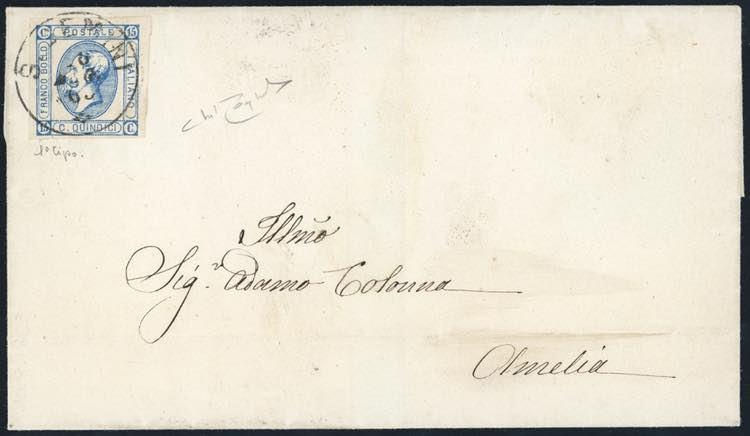 C.i POSTALE 15
FRANCO BOLLO
ITALIANO
15 C. QUINDICI C.i
AGO
63
1° tipo.
Illmo
Sig.r Adamo Colonna
Amelia